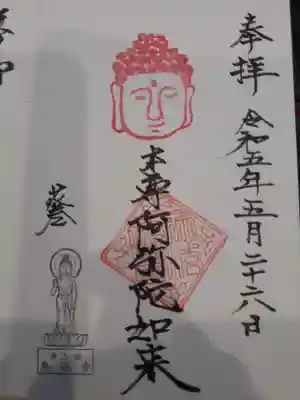 奉拝
令和五年五月二十六日
本尊阿弥陀如来